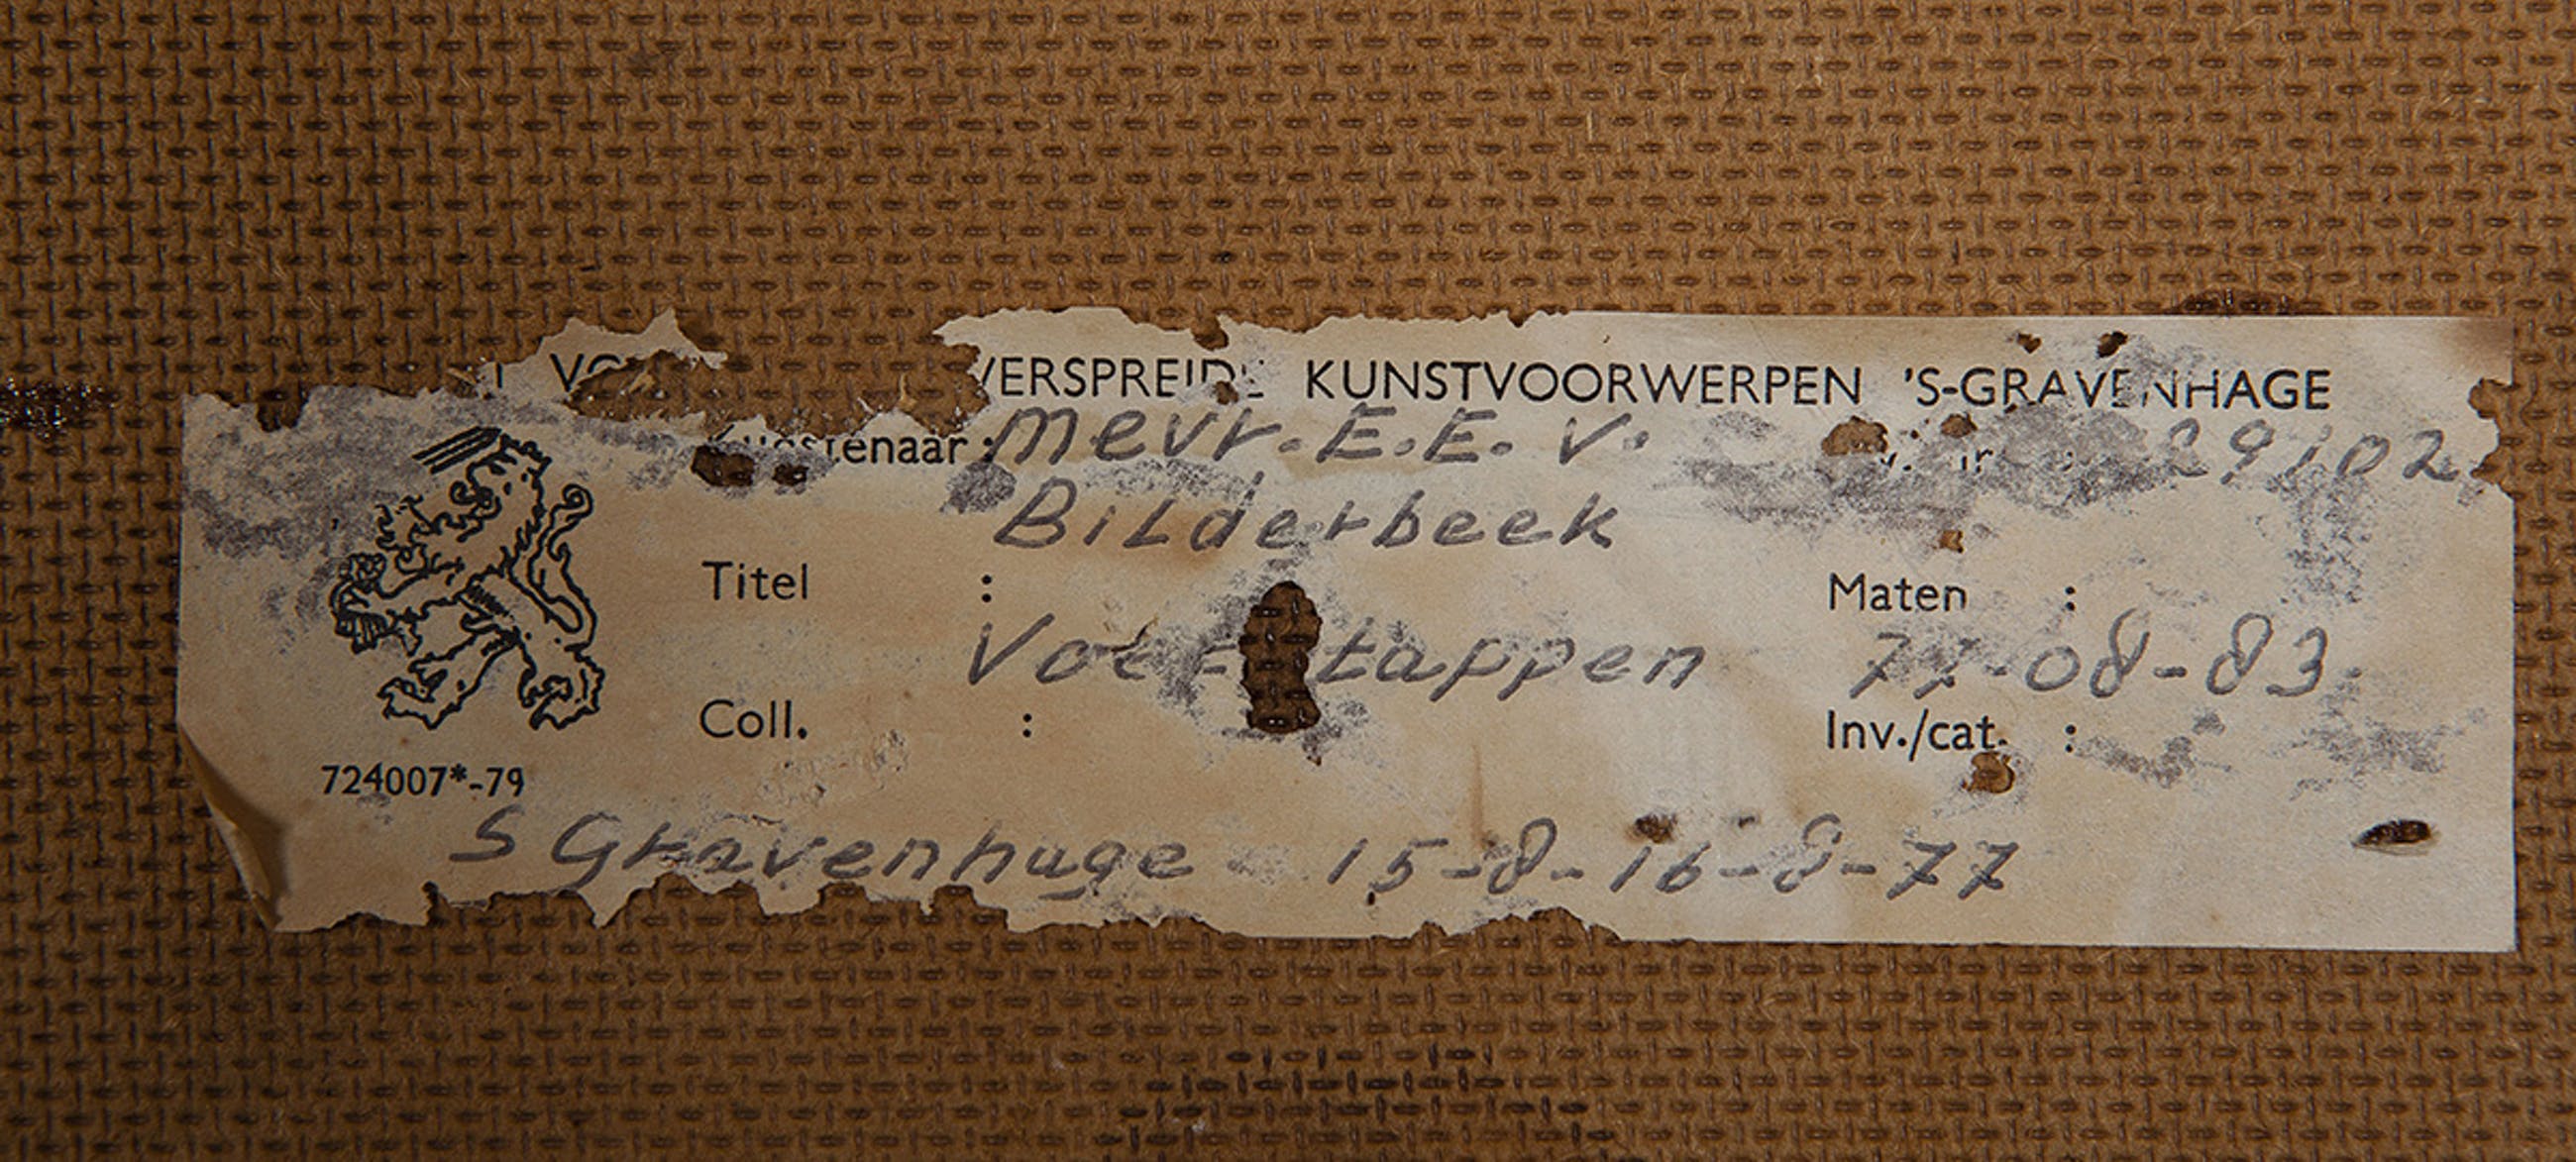 VERSPREIDE KUNSTVOORWERPEN 'S-GRAVENHAGE
Kunstenaar : Mevr. E. E. V. 29102
Bilderbeek
Titel : Maten :
tappen 77-08-83
Coll. : Inv./cat. :
724007*-79
S Gravenhage - 15-8-16-8-77